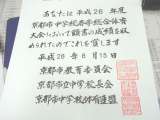 あなたは平成26年度
京都市中学校春季総合体育
大会において頭書の成績を収
められたのでこれを賞します
平成26年6月13日
京都市教育委員会
京都市立中学校長会
京都市中学校体育連盟